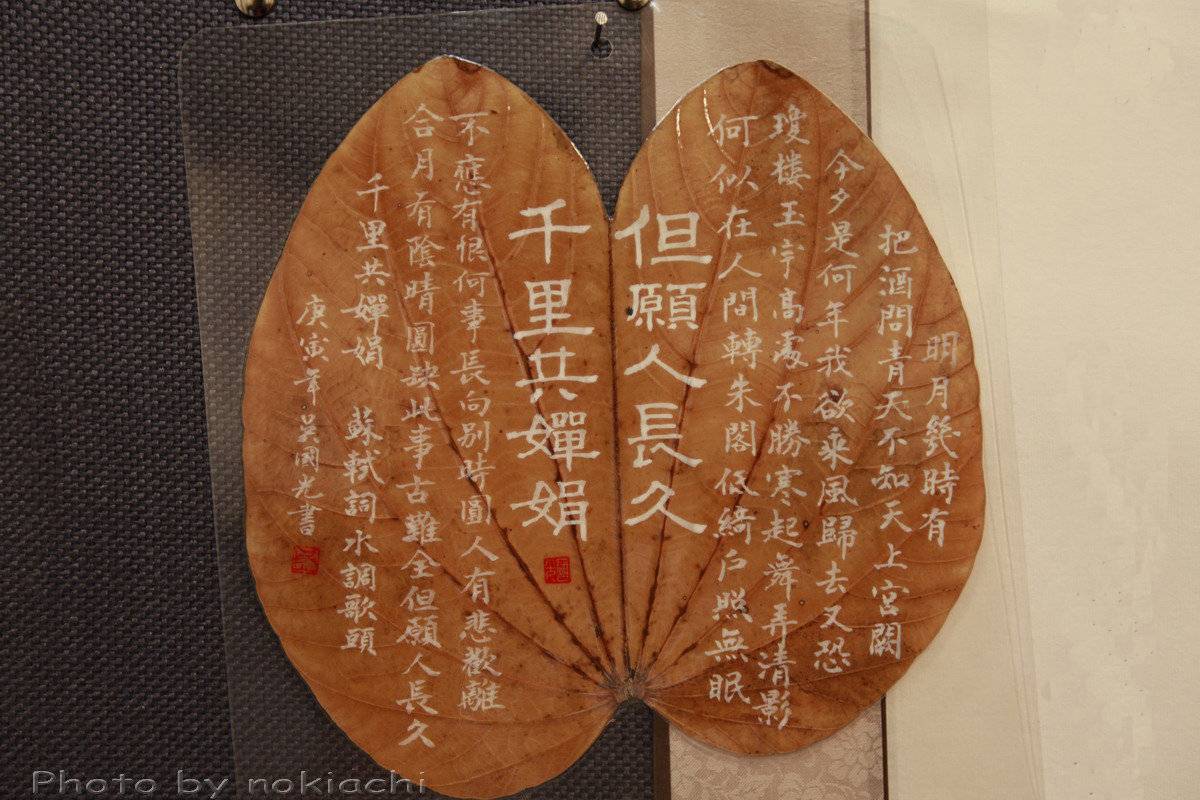 明月幾時有
把酒問青天不知天上宮闕
今夕是何年我欲乘風歸去又恐
瓊樓玉宇高處不勝寒起舞弄清影
何似在人間轉朱閣低綺戶照無眠
但願人長久
千里共嬋娟
不應有恨何事長向別時圓人有悲歡離
合月有陰晴圓缺此事古難全但願人長久
千里共嬋娟 蘇軾詞水調歌頭
庚寅年吳國光書
Photo by nokiachi